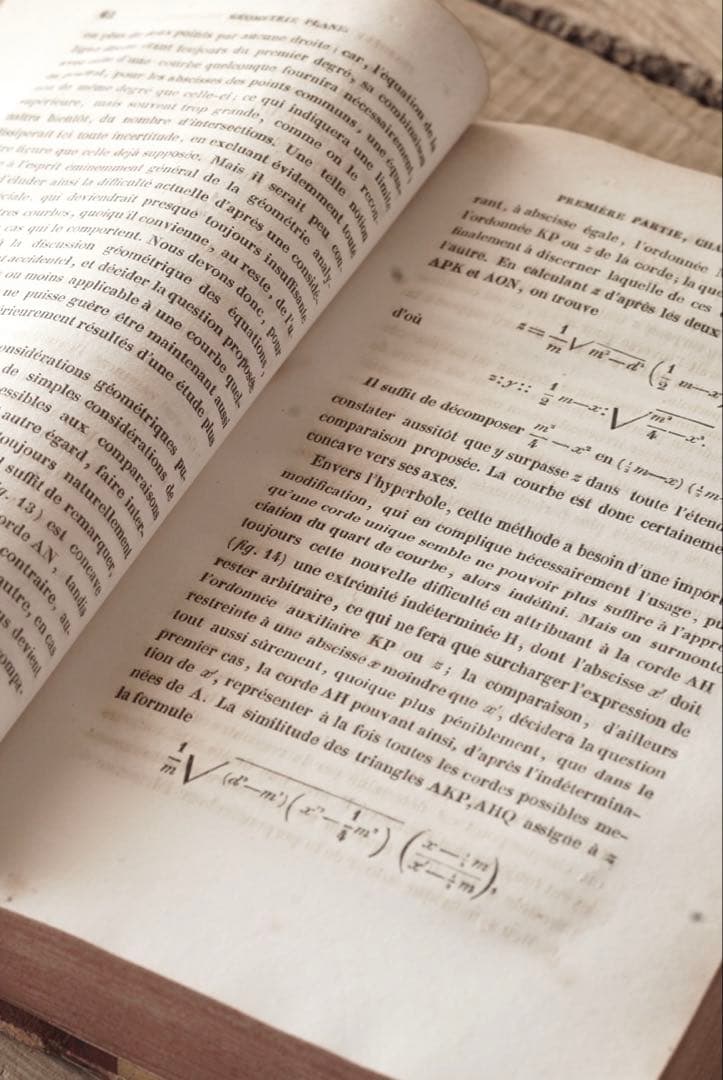 GÉOMÉTRIE PLANE
points par aucune droite; car, l'équation de la
toujours du premier degré, sa combinaison
courbe quelconque fournira nécessairement,
pour les abscisses des points communs, une équa-
de même degré que celle-ci: ce qui indiquera une limite
mais souvent trop grande, comme on le recon-
bientôt, du nombre d'intersections. Une telle notion
ici toute incertitude, en excluant évidemment toute
figure que celle déjà supposée. Mais il serait peu con-
à l'esprit éminemment général de la géométrie analy-
d'éluder ainsi la difficulté actuelle d'après une considé-
qui deviendrait presque toujours insuffisante
courbes, quoiqu'il convienne, au reste, de l'u
cas qui le comportent. Nous devons donc, pour
à la discussion géométrique des équations,
accidentel, et décider la question proposée
ou moins applicable à une courbe quel-
ne puisse guère être maintenant aussi
résultés d'une étude plus
considérations géométriques pu-
de simples considérations de
aux comparaisons
autre égard, faire inter-
toujours naturellement
suffit de remarquer,
13) est concave
corde AN, tandis
contraire, au-
autre, en cas
devient
compa-
PREMIÈRE PARTIE, CHA
rant, à abscisse égale, l'ordonnée
l'ordonnée KP ou z de la corde; la que
finalement à discerner laquelle de ces
l'autre. En calculant z d'après les deux
APK et AON, on trouve
z = 1/m √ m²—d² (1/2 m—x
d'où
z:y:: 1/2 m—x: √ m²/4 —x².
Il suffit de décomposer m²/4 —x² en (1/2 m—x) (1/2 m
constater aussitôt que y surpasse z dans toute l'éten
comparaison proposée. La courbe est donc certaineme
concave vers ses axes.
Envers l'hyperbole, cette méthode a besoin d'une impor
modification, qui en complique nécessairement l'usage, pu
qu'une corde unique semble ne pouvoir plus suffire à l'appré
ciation du quart de courbe, alors indéfini. Mais on surmonte
toujours cette nouvelle difficulté en attribuant à la corde AH
(fig. 14) une extrémité indéterminée H, dont l'abscisse x' doit
rester arbitraire, ce qui ne fera que surcharger l'expression de
l'ordonnée auxiliaire KP ou z; la comparaison, d'ailleurs
restreinte à une abscisse x moindre que x', décidera la question
tout aussi sûrement, quoique plus péniblement, que dans le
premier cas, la corde AH pouvant ainsi, d'après l'indétermina-
tion de x', représenter à la fois toutes les cordes possibles me-
nées de A. La similitude des triangles AKP, AHQ assigne à z
la formule
1/m √ (d²—m²) (x'²—1/4 m²) (x—1/2 m / x'—1/2 m),